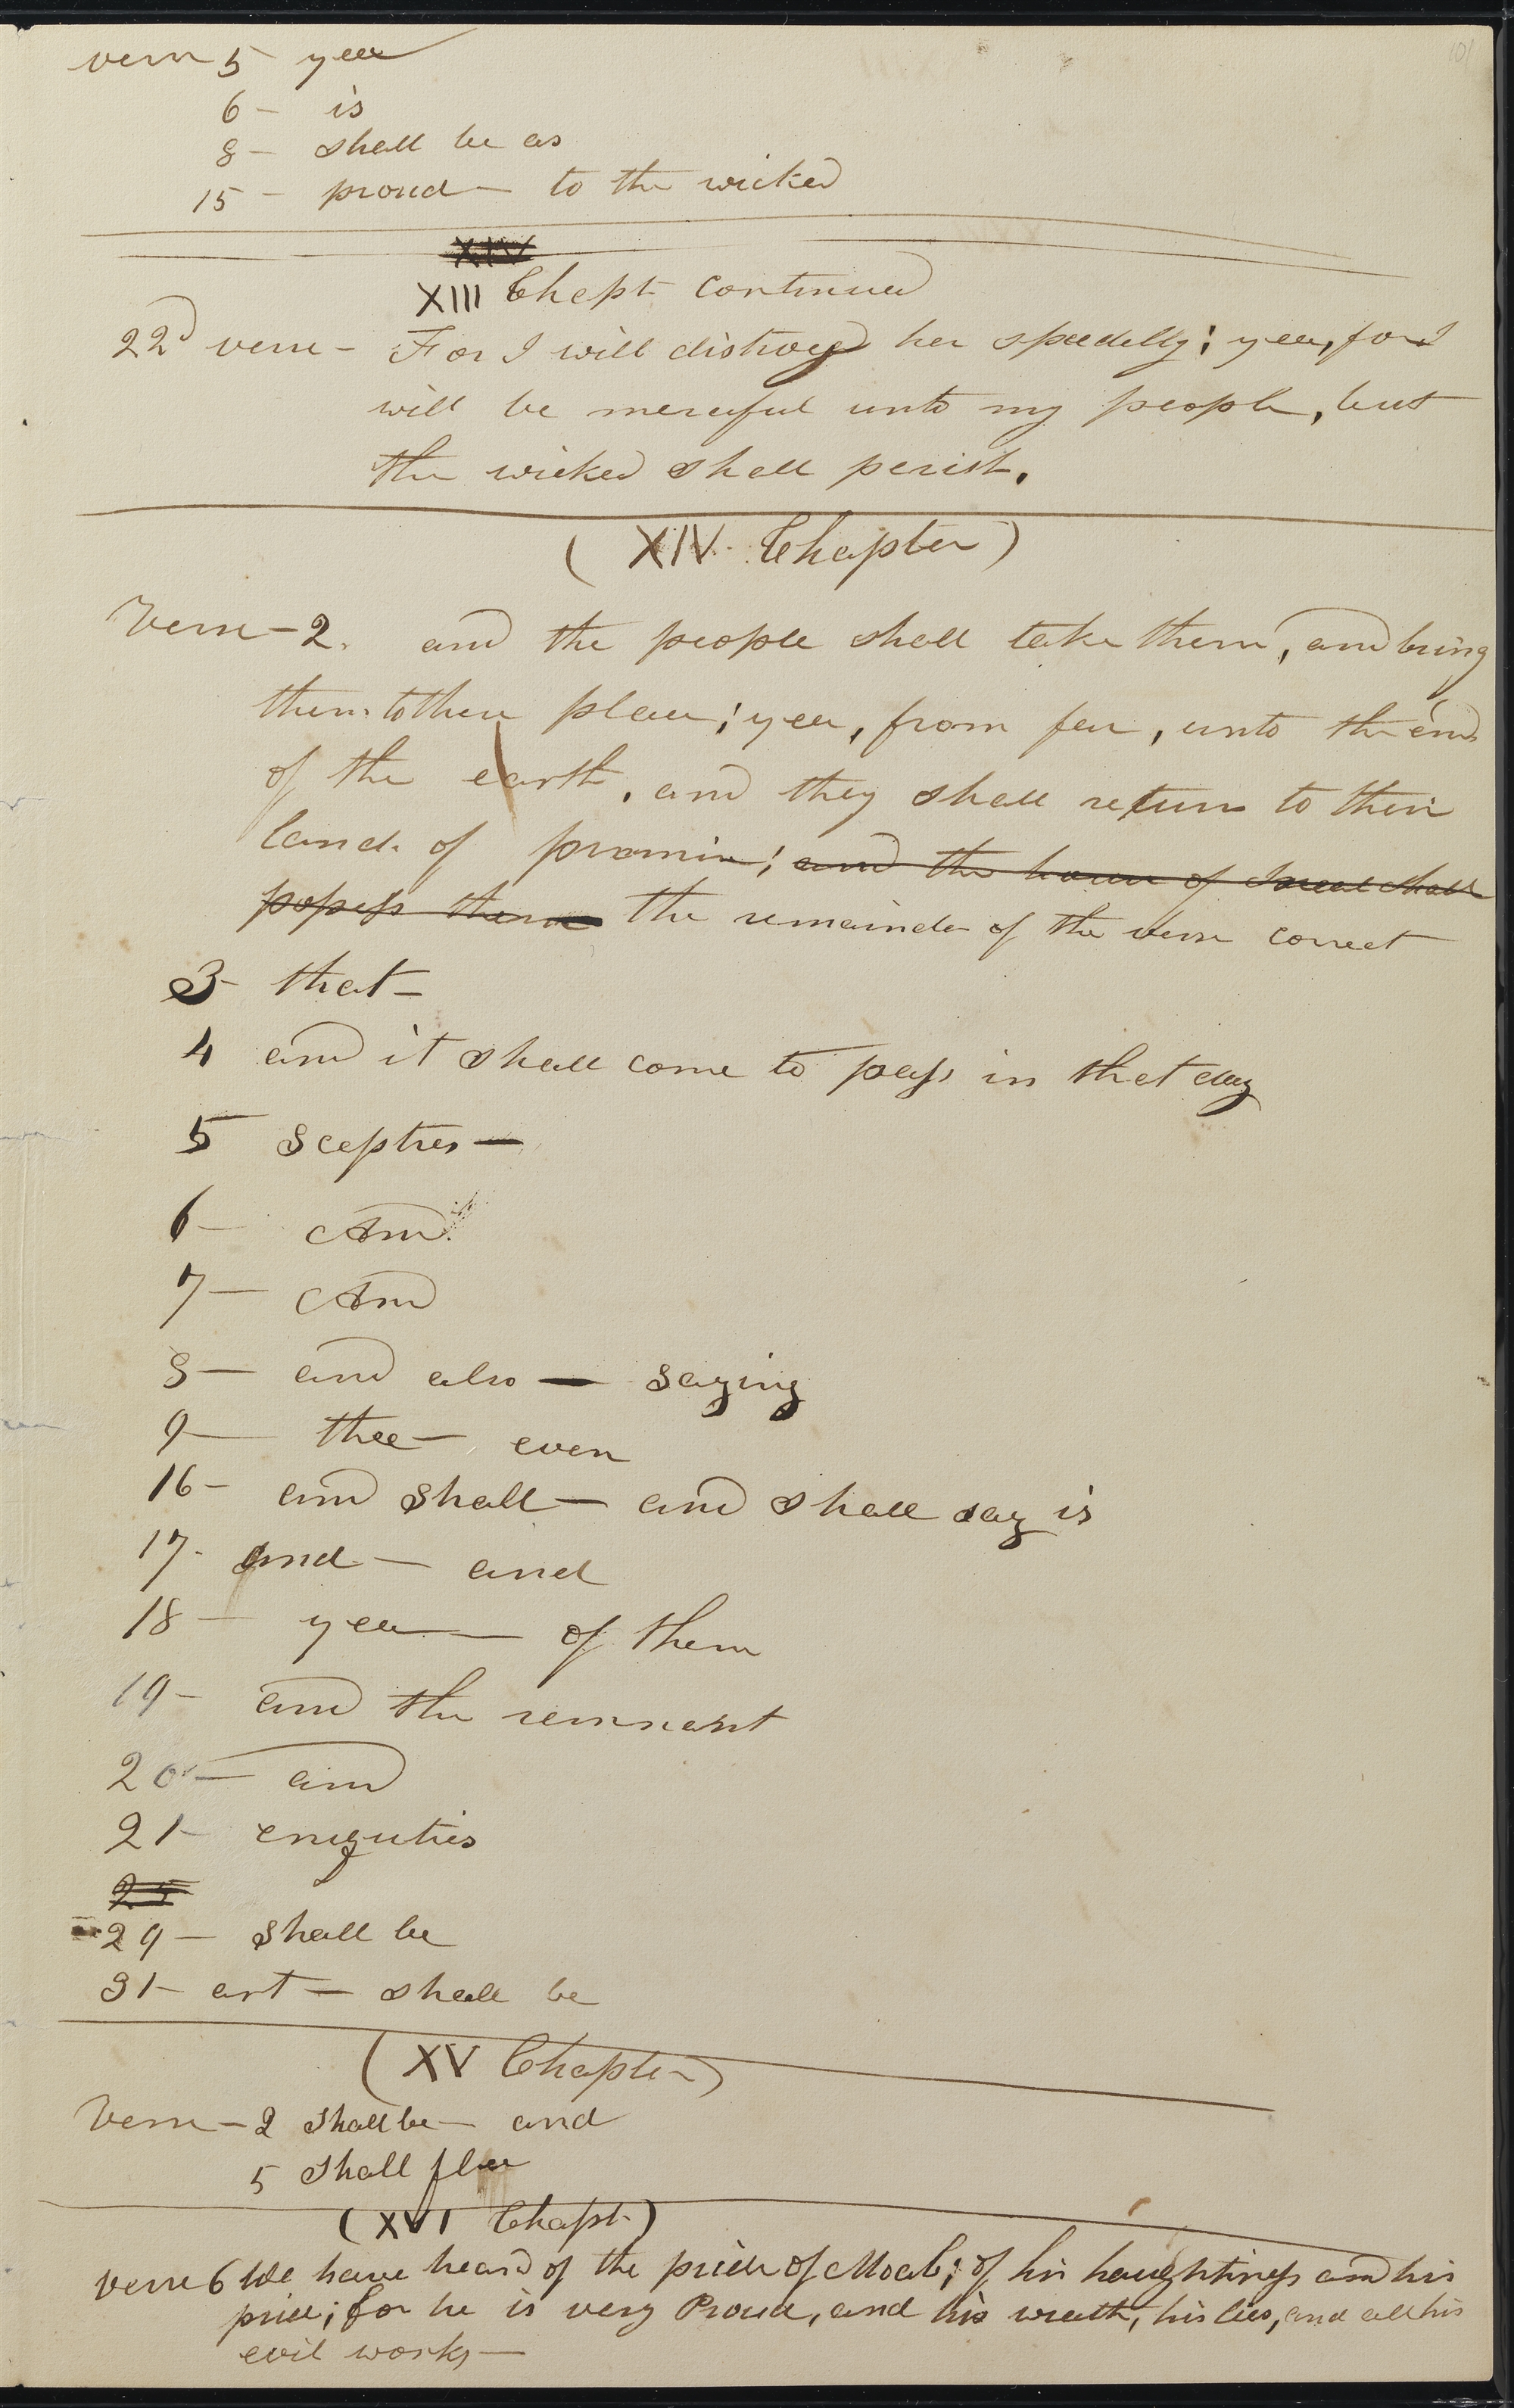 101
verse 5 yea
6 — is
8 — shall be as
15 — proud — to the wicked
XIV
XIII Chapt continued
22d verse — For I will distroy her speedily; yea, for I
will be merciful unto my people, but
the wicked shall perish.
( XIV. Chapter )
Verse — 2. and the people shall take them, and bring
them to their place; yea, from far, unto the end
of the earth, and they shall return to their
lands of promise; and the house of Israel shall
possess them the remainder of the verse correct
3 — that —
4 and it shall come to pass in that day
5 Sceptres —
6 — And
7 — And
8 — and also — saying
9 — thee — even
16 — and shall — and shall say is
17. and — and
18 — yea — of them
19 — and the remnant
20 — and
21 — eniquties
25
29 — shall be
31 — art — shall be
( XV Chapter )
Verse — 2 shall be — and
5 shall flee
( XVI Chapt )
verse 6 We have heard of the pride of Moab; of his haughtiness and his
pride; for he is very Proud, and his wrath, his lies, and all his
evil works —